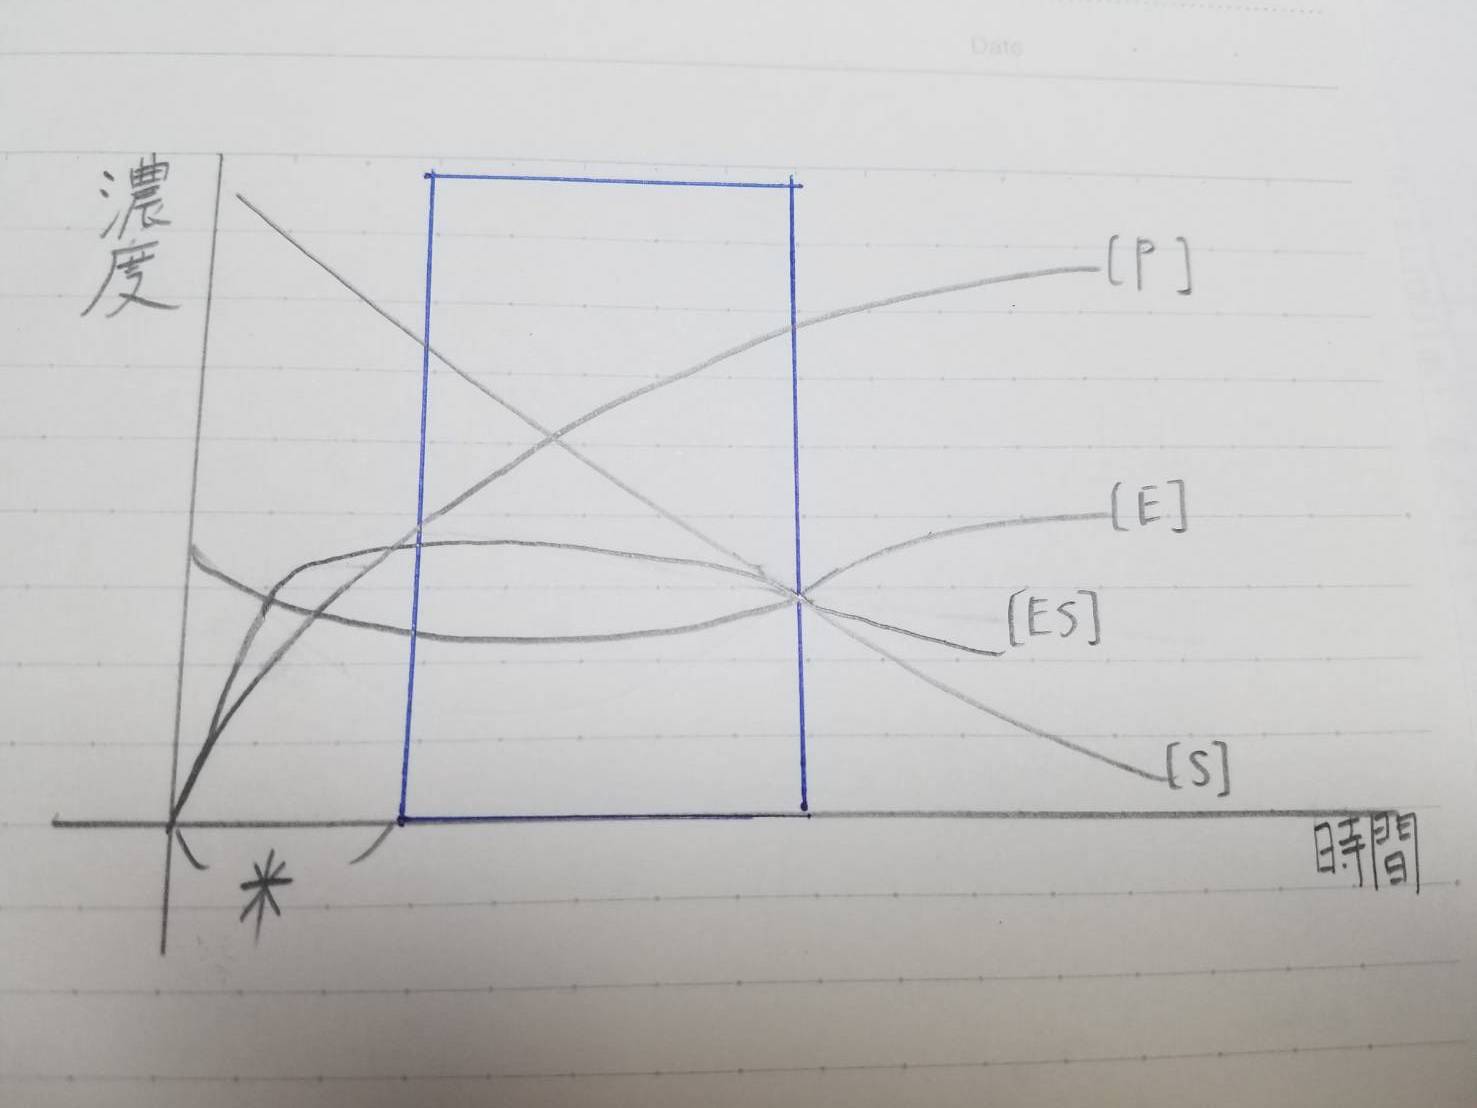 Date
濃度
[P]
[E]
[ES]
[S]
時間
*